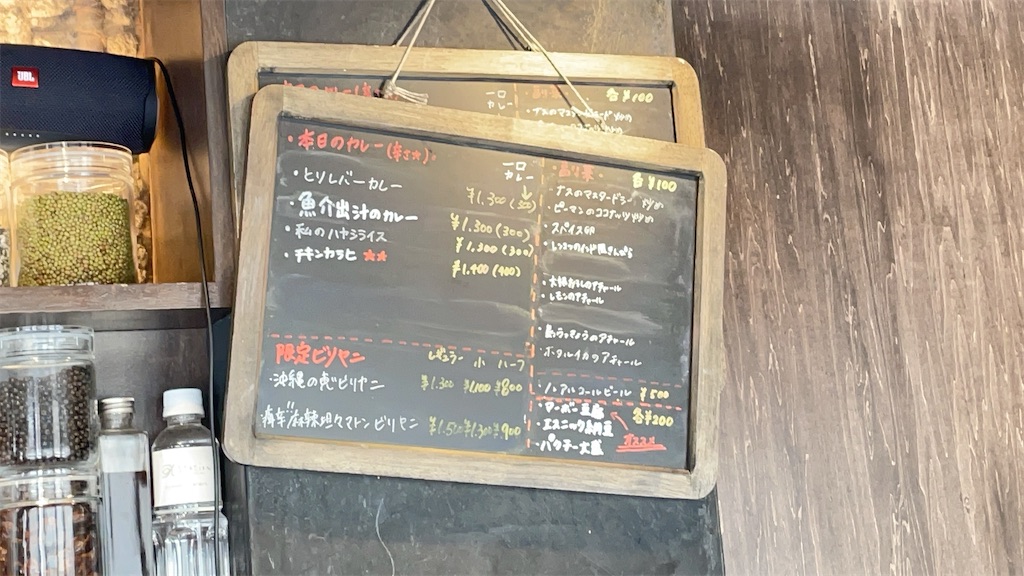 JBL
一口
カレー
各¥100
・本日のカレー(辛さ★)
一口
カレー
・とりレバーカレー ¥1,300(300)
・魚介出汁のカレー ¥1,300(300)
・私のハヤシライス ¥1,300(300)
・チキンカラヒ ★★ ¥1,400(400)
限定ビリヤニ
レギュラー 小 ハーフ
・沖縄の ビリヤニ ¥1,300 ¥1,100 ¥800
麻辣坦々マトンビリヤニ ¥1,500 ¥1,300 ¥900
各¥100
・ナスのマスタード 炒め
・ピーマンのココナッツ炒め
・スパイス卵
・大根おろしのアチャール
・レモンのアチャール
・島らっきょうのアチャール
・ホタルイカのアチャール
・ノンアルコールビール ¥500
・マーボー豆腐 各¥200
・エスニック納豆
・パクチー大盛
オススメ